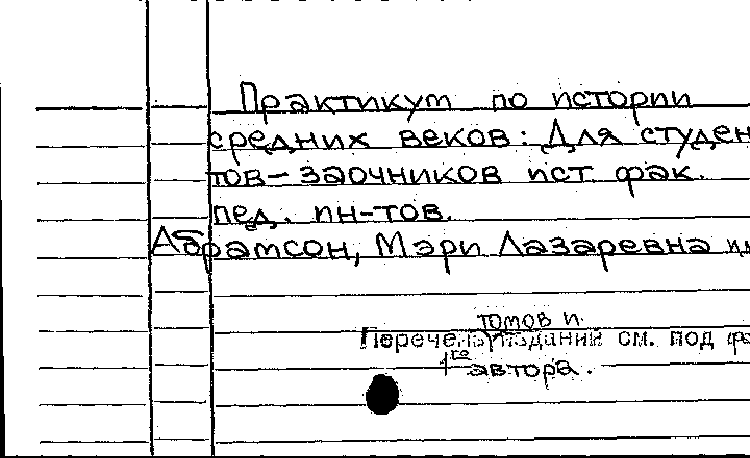 Практикум по истории
средних веков: Для студен
тов-заочников ист фак.
пед. ин-тов.
Абрамсон, Мэри Лазаревна и
томов и
Перечень изданий см. под
1го автора.